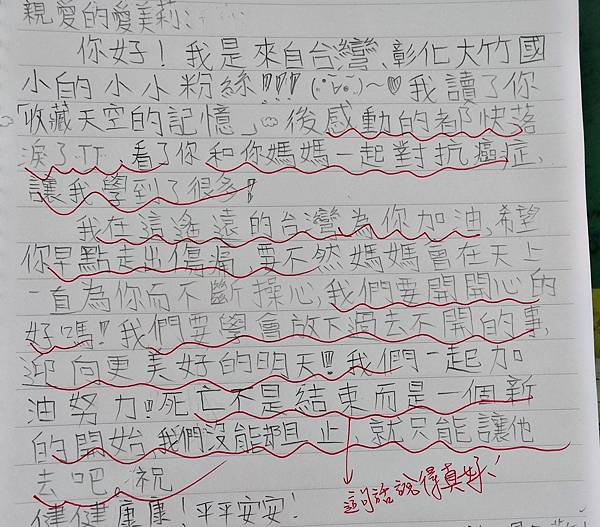 親愛的愛美莉:
你好!我是來自台灣、彰化大竹國
小的小小粉絲!!!(˙▽˙)~♡我讀了你
「收藏天空的記憶」後感動的都快落
淚了TT,看了你和你媽媽一起對抗癌症,
讓我學到了很多!
我在這遙遠的台灣為你加油,希望
你早點走出傷漏,要不然媽媽會在天上
一直為你而不斷操心,我們要開開心的
好嗎!!我們要學會放下過去不開的事,
迎向更美好的明天!!!我們一起加
油努力!!死亡不是結束而是一個新
的開始,我們沒能阻止,就只能讓他
去吧。祝
這句話說得真好!
健健康康!平平安安!